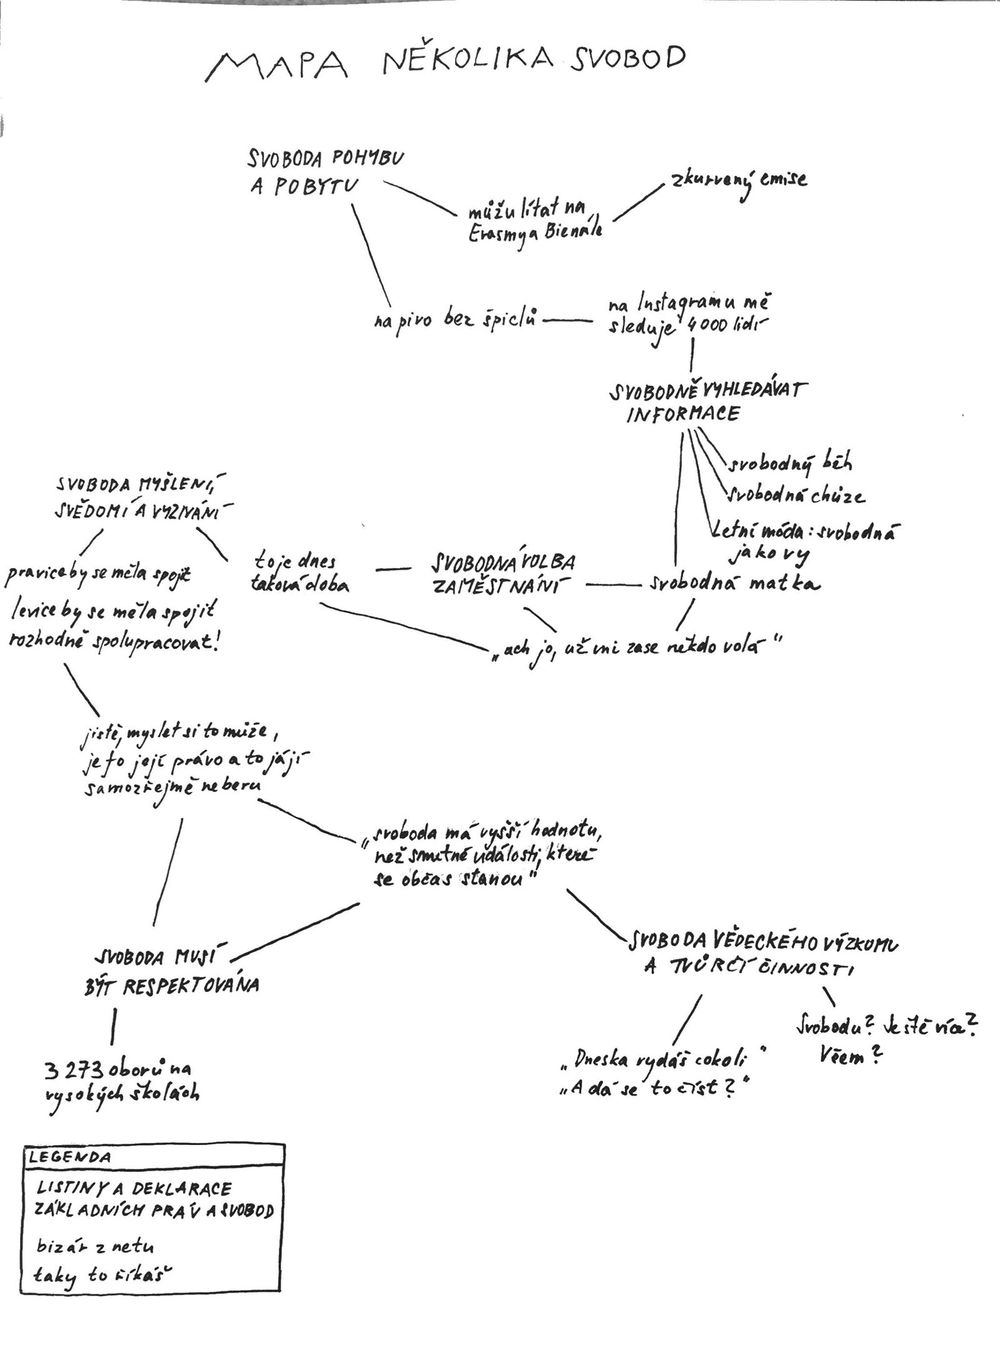 MAPA NĚKOLIKA SVOBOD
SVOBODA POHYBU
A POBYTU
můžu lítat na
Erasmy a Bienále
zkurvený emise
na pivo bez špiclů
na Instagramu mě
sleduje 4000 lidí
SVOBODNĚ VYHLEDÁVAT
INFORMACE
svobodný běh
svobodná chůze
Letní móda: svobodná
jako vy
svobodná matka
SVOBODA MYŠLENÍ,
SVĚDOMÍ A VYZNÁNÍ
pravice by se měla spojit
levice by se měla spojit
rozhodně spolupracovat!
to je dnes
taková doba
SVOBODNÁ VOLBA
ZAMĚSTNÁNÍ
„ach jo, už mi zase někdo volá"
jistě, myslet si to může,
je to její právo a to jájí
samozřejmě neberu
„svoboda má vyšší hodnotu,
než smutné události, které
se občas stanou"
SVOBODA MUSÍ
BÝT RESPEKTOVÁNA
3 273 oborů na
vysokých školách
SVOBODA VĚDECKÉHO VÝZKUMU
A TVŮRČÍ ČINNOSTI
„Dneska vydáš cokoli"
„A dá se to číst?"
Svobodu? Ještě víc?
V čem?
LEGENDA
LISTINY A DEKLARACE
ZÁKLADNÍCH PRÁV A SVOBOD
bizár z netu
taky to říkáš